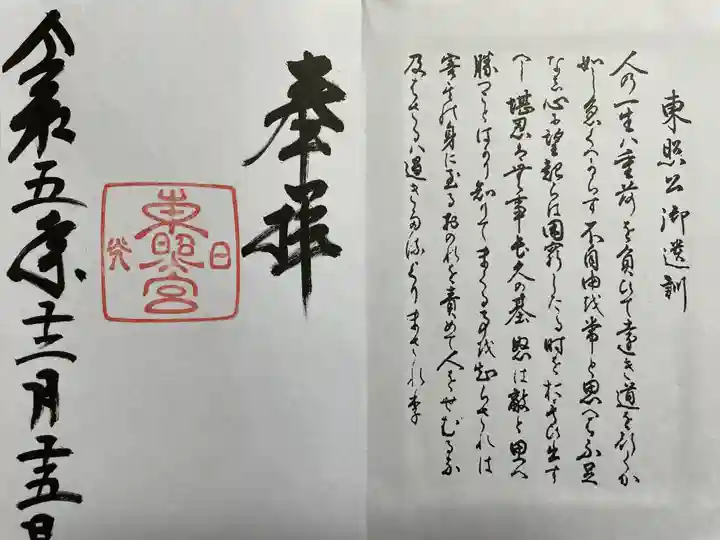 東照公御遺訓
人の一生ハ重荷を負ひて遠き道を行くか
如し急くへからす不自由を常と思へハ不足
なし心に望起らは困窮したる時を おもひ出す
へし堪忍は無事長久の基怒は敵と思へ
勝つことはかり知りてまくる事を知らされは
害其の身に至るおのれを責めて人をせむるな
及はさるハ過きたるよりまされり
奉拝
日光
東照宮
令和五年十二月十五日